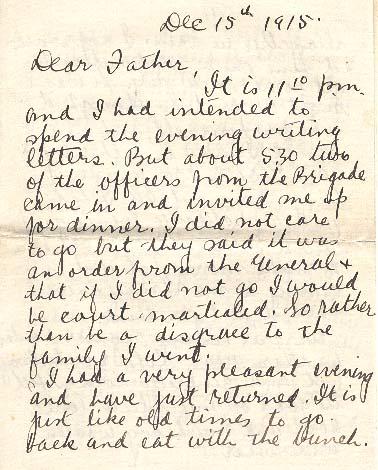 Dec 15th 1915.
Dear Father,
It is 11 10 pm.
and I had intended to
spend the evening writing
letters. But about 5.30 two
of the officers from the Brigade
came in and invited me up
for dinner. I did not care
to go but they said it was
an order from the General &
that if I did not go I would
be court martialed. So rather
than be a disgrace to the
family I went.
I had a very pleasant evening
and have just returned. It is
just like old times to go
back and eat with the bunch.